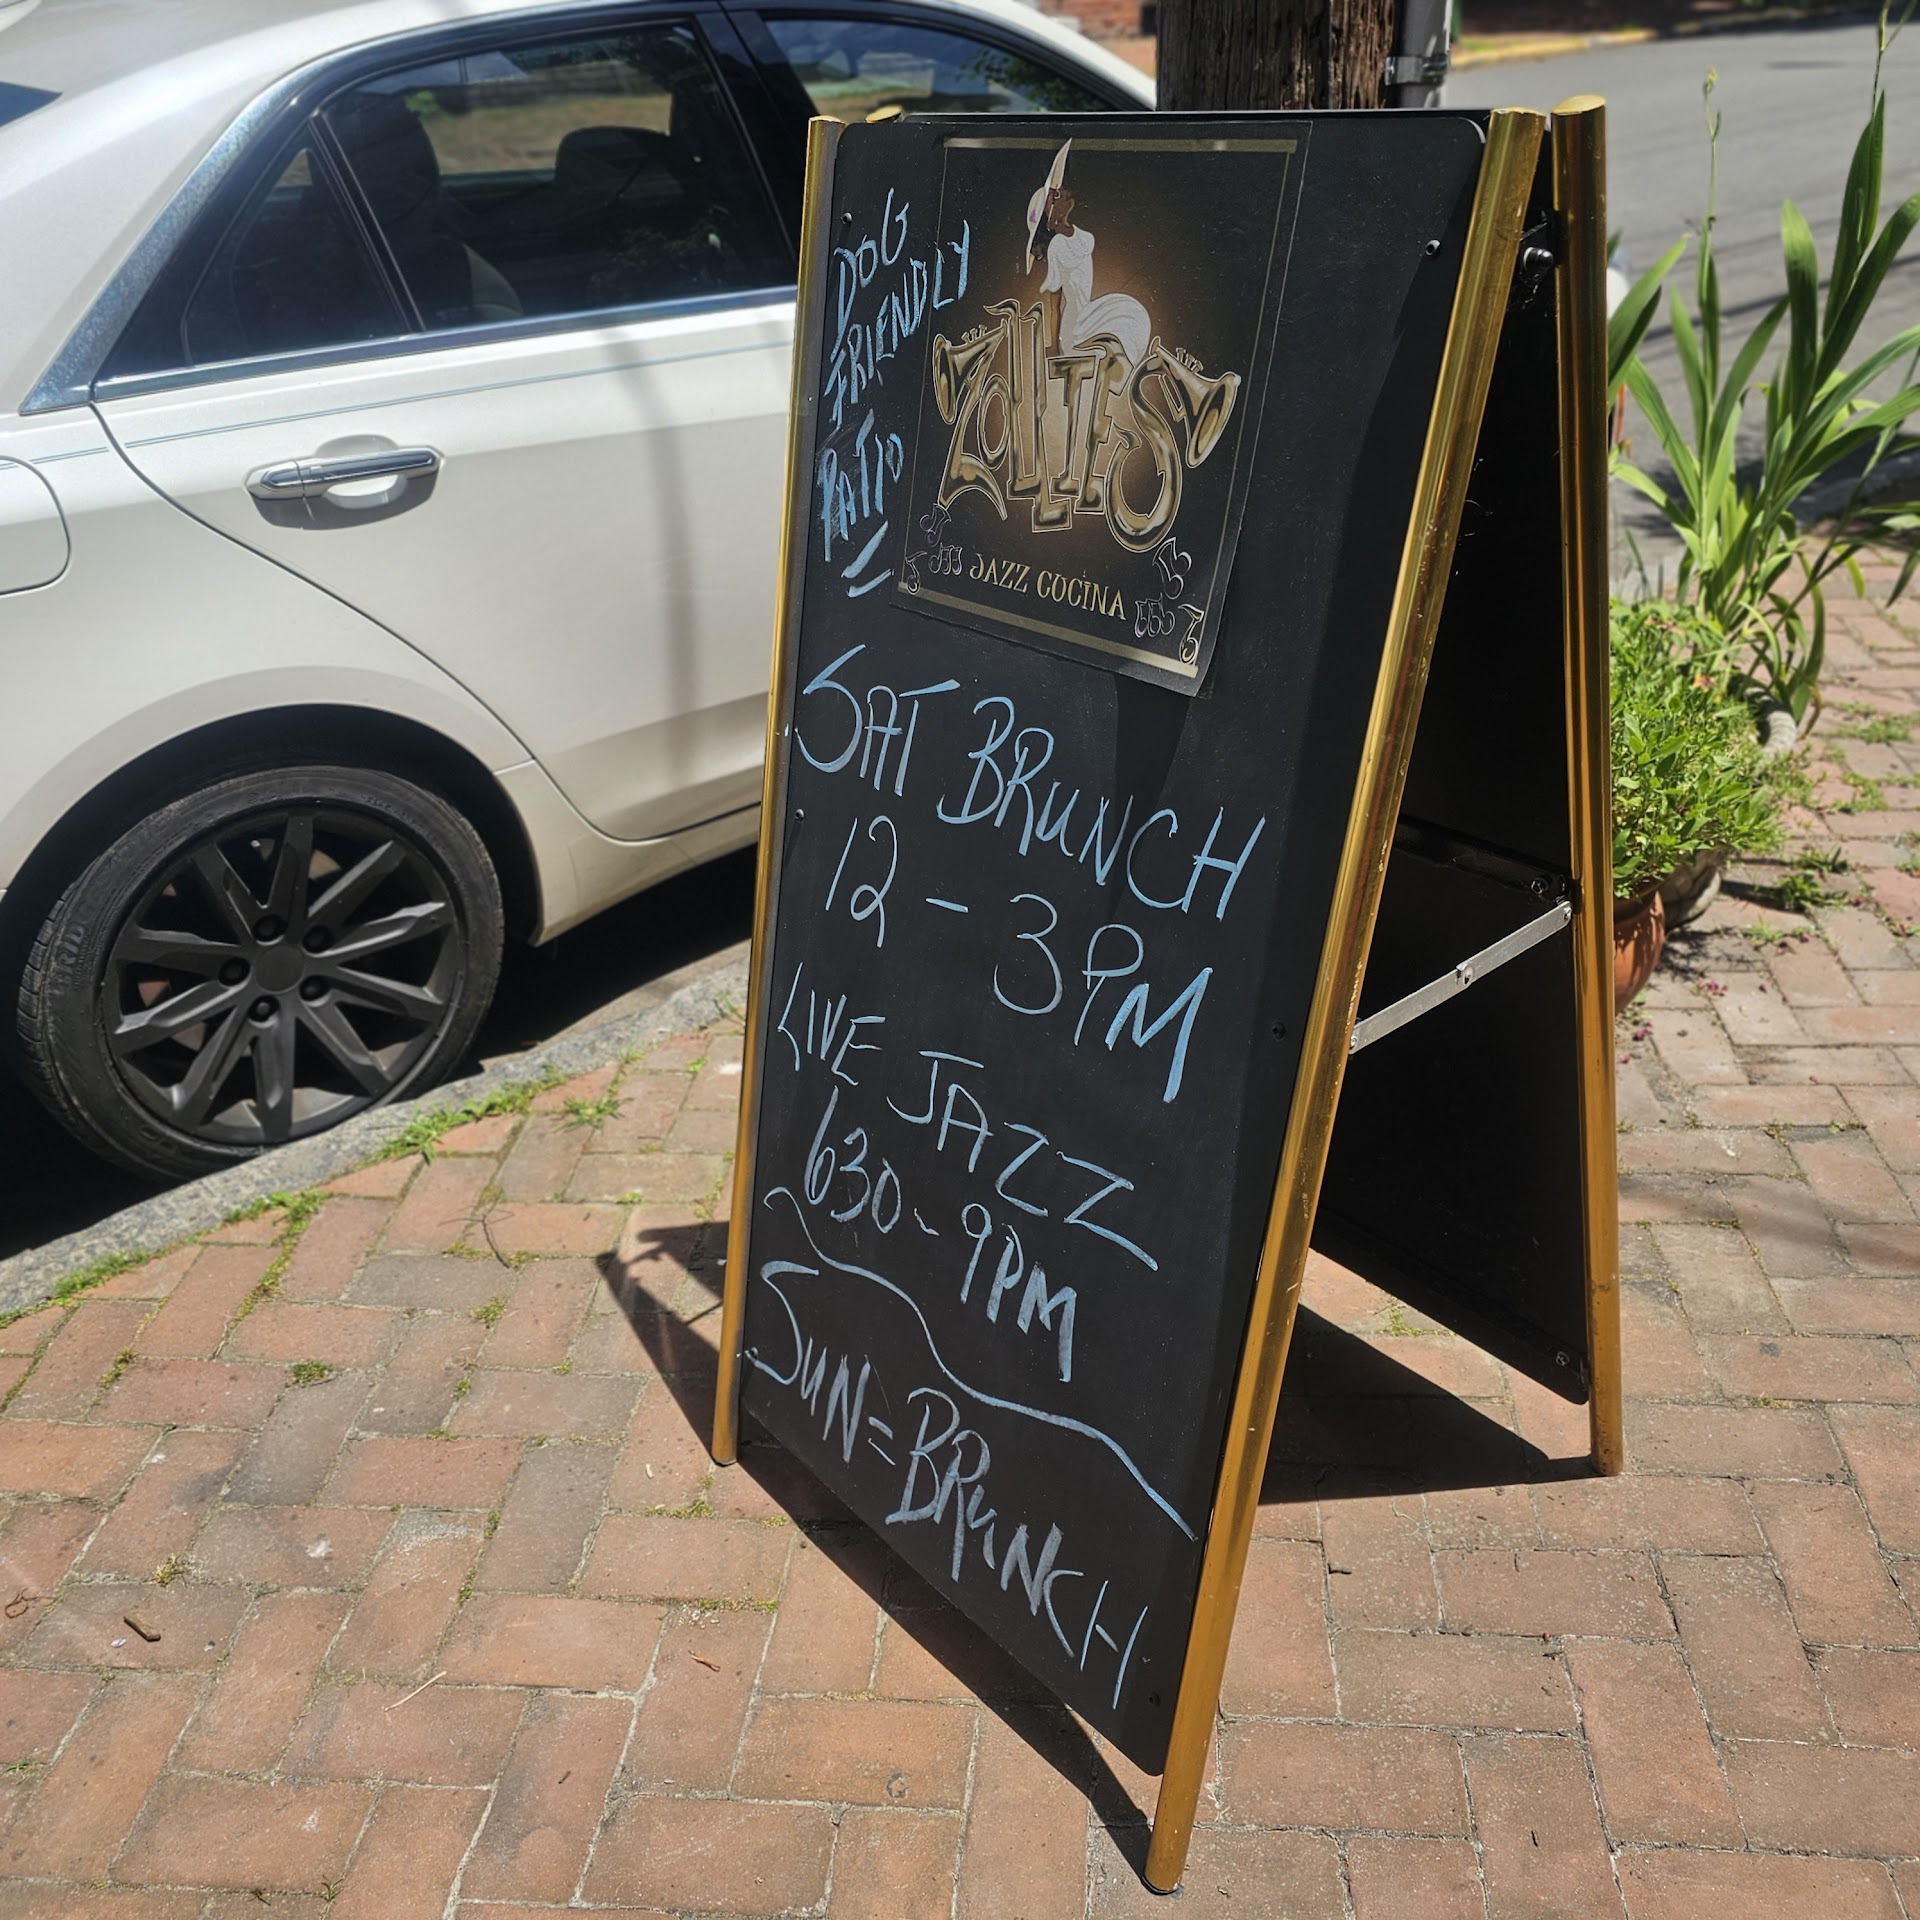 DOG
FRIENDLY
PATIO
ZOLLIES
JAZZ CUCINA
SAT BRUNCH
12 - 3PM
LIVE JAZZ
630 - 9PM
SUN = BRUNCH